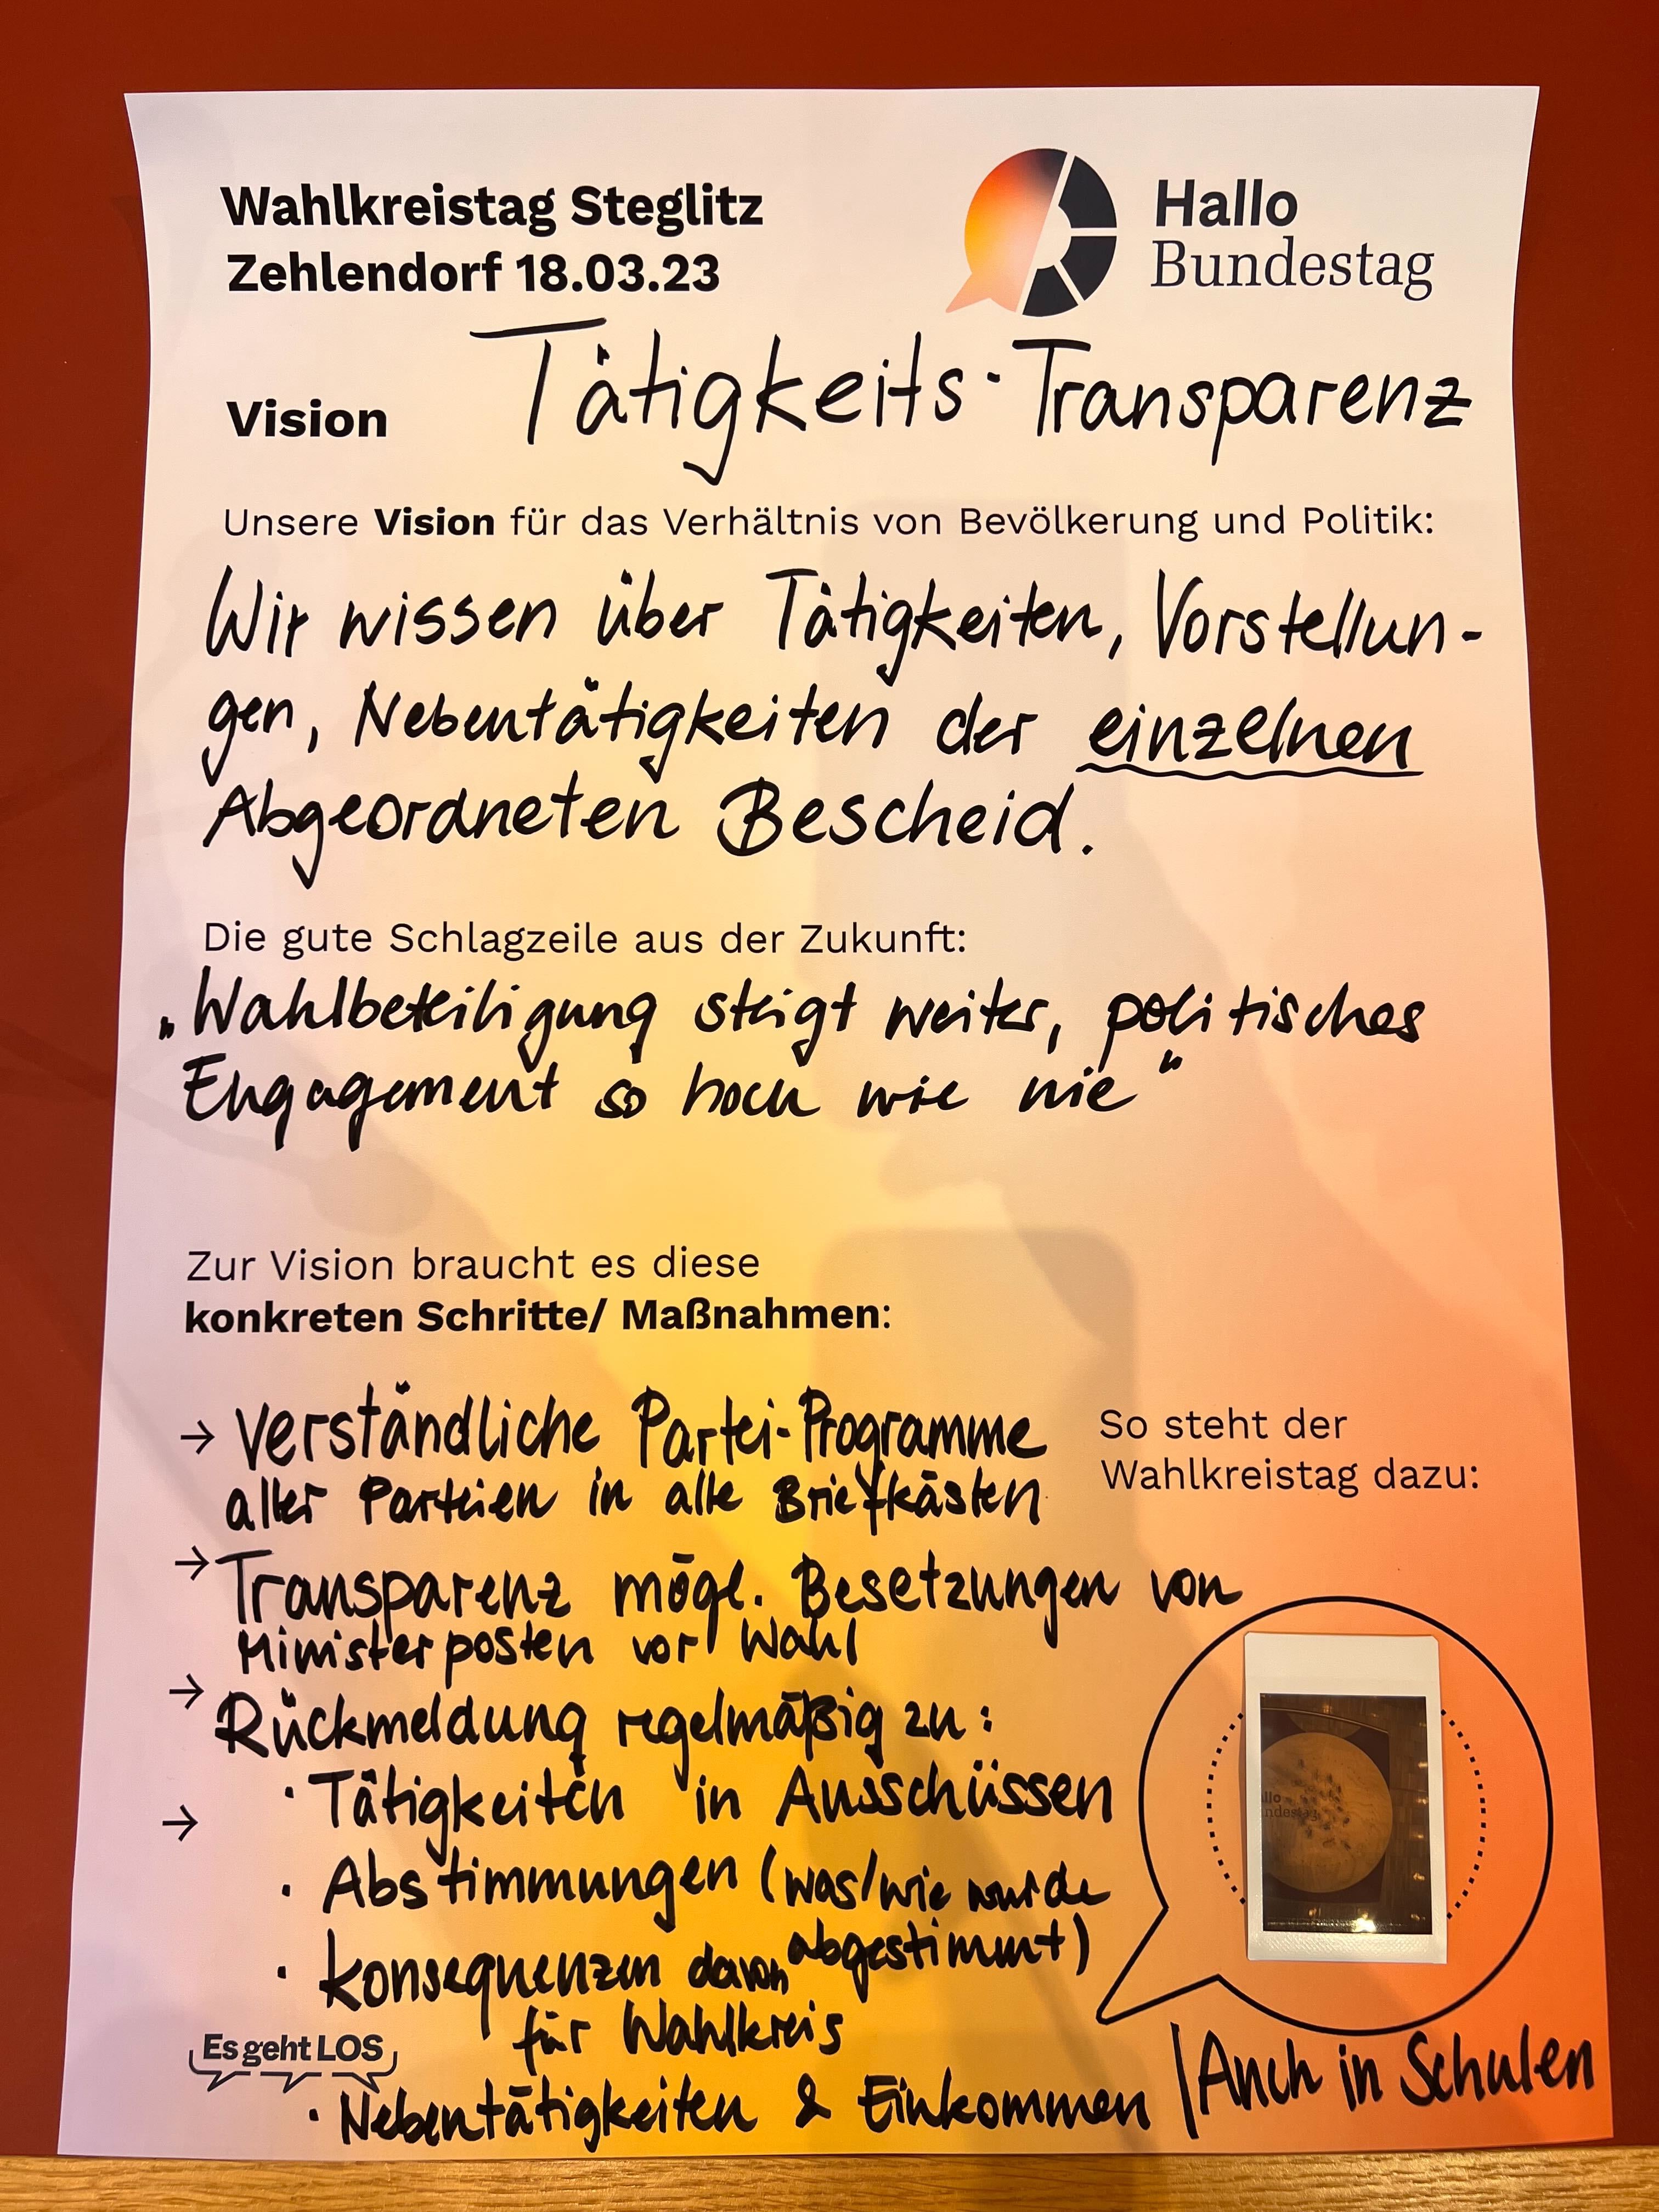 Wahlkreistag Steglitz
Zehlendorf 18.03.23
Hallo
Bundestag
Vision
Tätigkeits-Transparenz
Unsere Vision für das Verhältnis von Bevölkerung und Politik:
Wir wissen über Tätigkeiten, Vorstellun-
gen, Nebentätigkeiten der einzelnen
Abgeordneten Bescheid.
Die gute Schlagzeile aus der Zukunft:
„Wahlbeteiligung steigt weiter, politisches
Engagement so hoch wie nie“
Zur Vision braucht es diese
konkreten Schritte/ Maßnahmen:
→ Verständliche Partei-Programme
aller Parteien in alle Briefkästen
→ Transparenz mögl. Besetzungen von
Ministerposten vor Wahl
→ Rückmeldung regelmäßig zu:
→ · Tätigkeiten in Ausschüssen
· Abstimmungen (was/wie wurde
abgestimmt)
· Konsequenzen davon
für Wahlkreis
· Nebentätigkeiten & Einkommen | Auch in Schulen
So steht der
Wahlkreistag dazu:
allo
ndestag
Es geht LOS